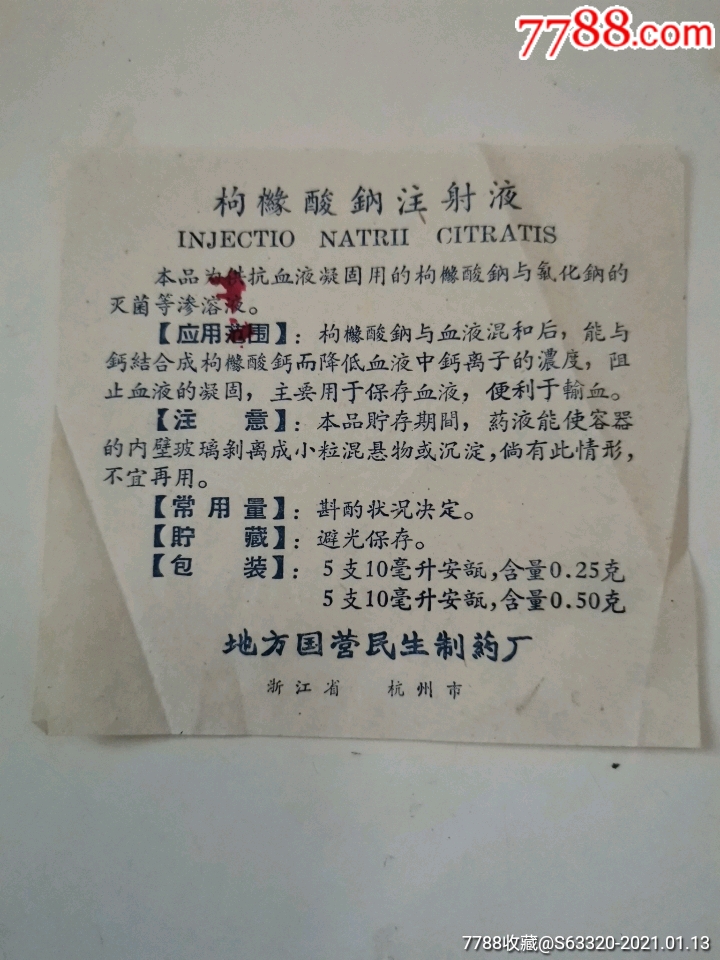 7788.com
枸櫞酸鈉注射液
INJECTIO NATRII CITRATIS
本品为供抗血液凝固用的枸櫞酸鈉与氯化鈉的
灭菌等渗溶液。
【应用范围】：枸櫞酸鈉与血液混和后，能与
鈣結合成枸櫞酸鈣而降低血液中鈣离子的濃度，阻
止血液的凝固，主要用于保存血液，便利于輸血。
【注 意】：本品貯存期間，葯液能使容器
的內壁玻璃剝离成小粒混悬物或沉淀，倘有此情形，
不宜再用。
【常用量】：斟酌状况决定。
【貯 藏】：避光保存。
【包 装】：5支10毫升安瓿，含量0.25克
5支10毫升安瓿，含量0.50克
地方国营民生制葯厂
浙江省 杭州市
7788收藏@S63320-2021.01.13